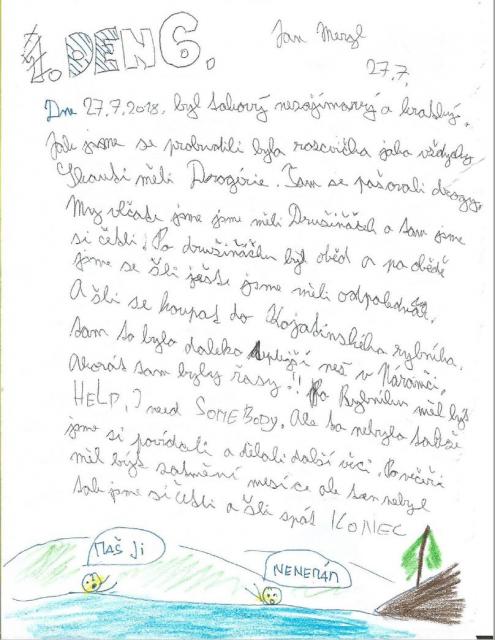 1. DEN 6.
Jan Mergl
27.7.
Dne 27.7.2018. byl takový nezajímavý a krátký.
Jak jsme se probudili byla rozcvička jako vždycky
Skauti měli Drogérie. Tam se pašovali drogy.
My vlčata jsme jsme měli Družiňáček a tam jsme
si četli. Po družiňáčku byl oběd a po obědě
jsme se šli ještě jsme měli odpoledňák.
A šli se koupat do Kojatínského rybníka.
tam to bylo daleko lepší než v Náramči,
Akorát tam byly řasy!! Po Rybníku měl být
HELP, I need SOMEBODY. Ale to nebylo takže
jsme si povídali a dělali další věci. Po večeři
měl být zatmění měsíce ale ten nebyl
tak jsme si četli a šli spát KONEC
MAŠ JI
NENEMÁM